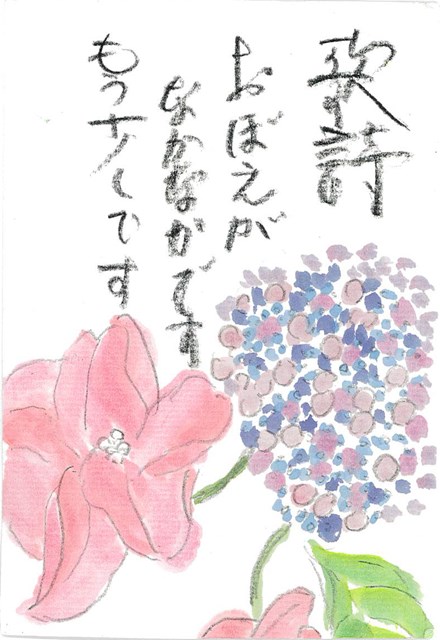 歌詩
おぼえが
なかなかです
もう少しです